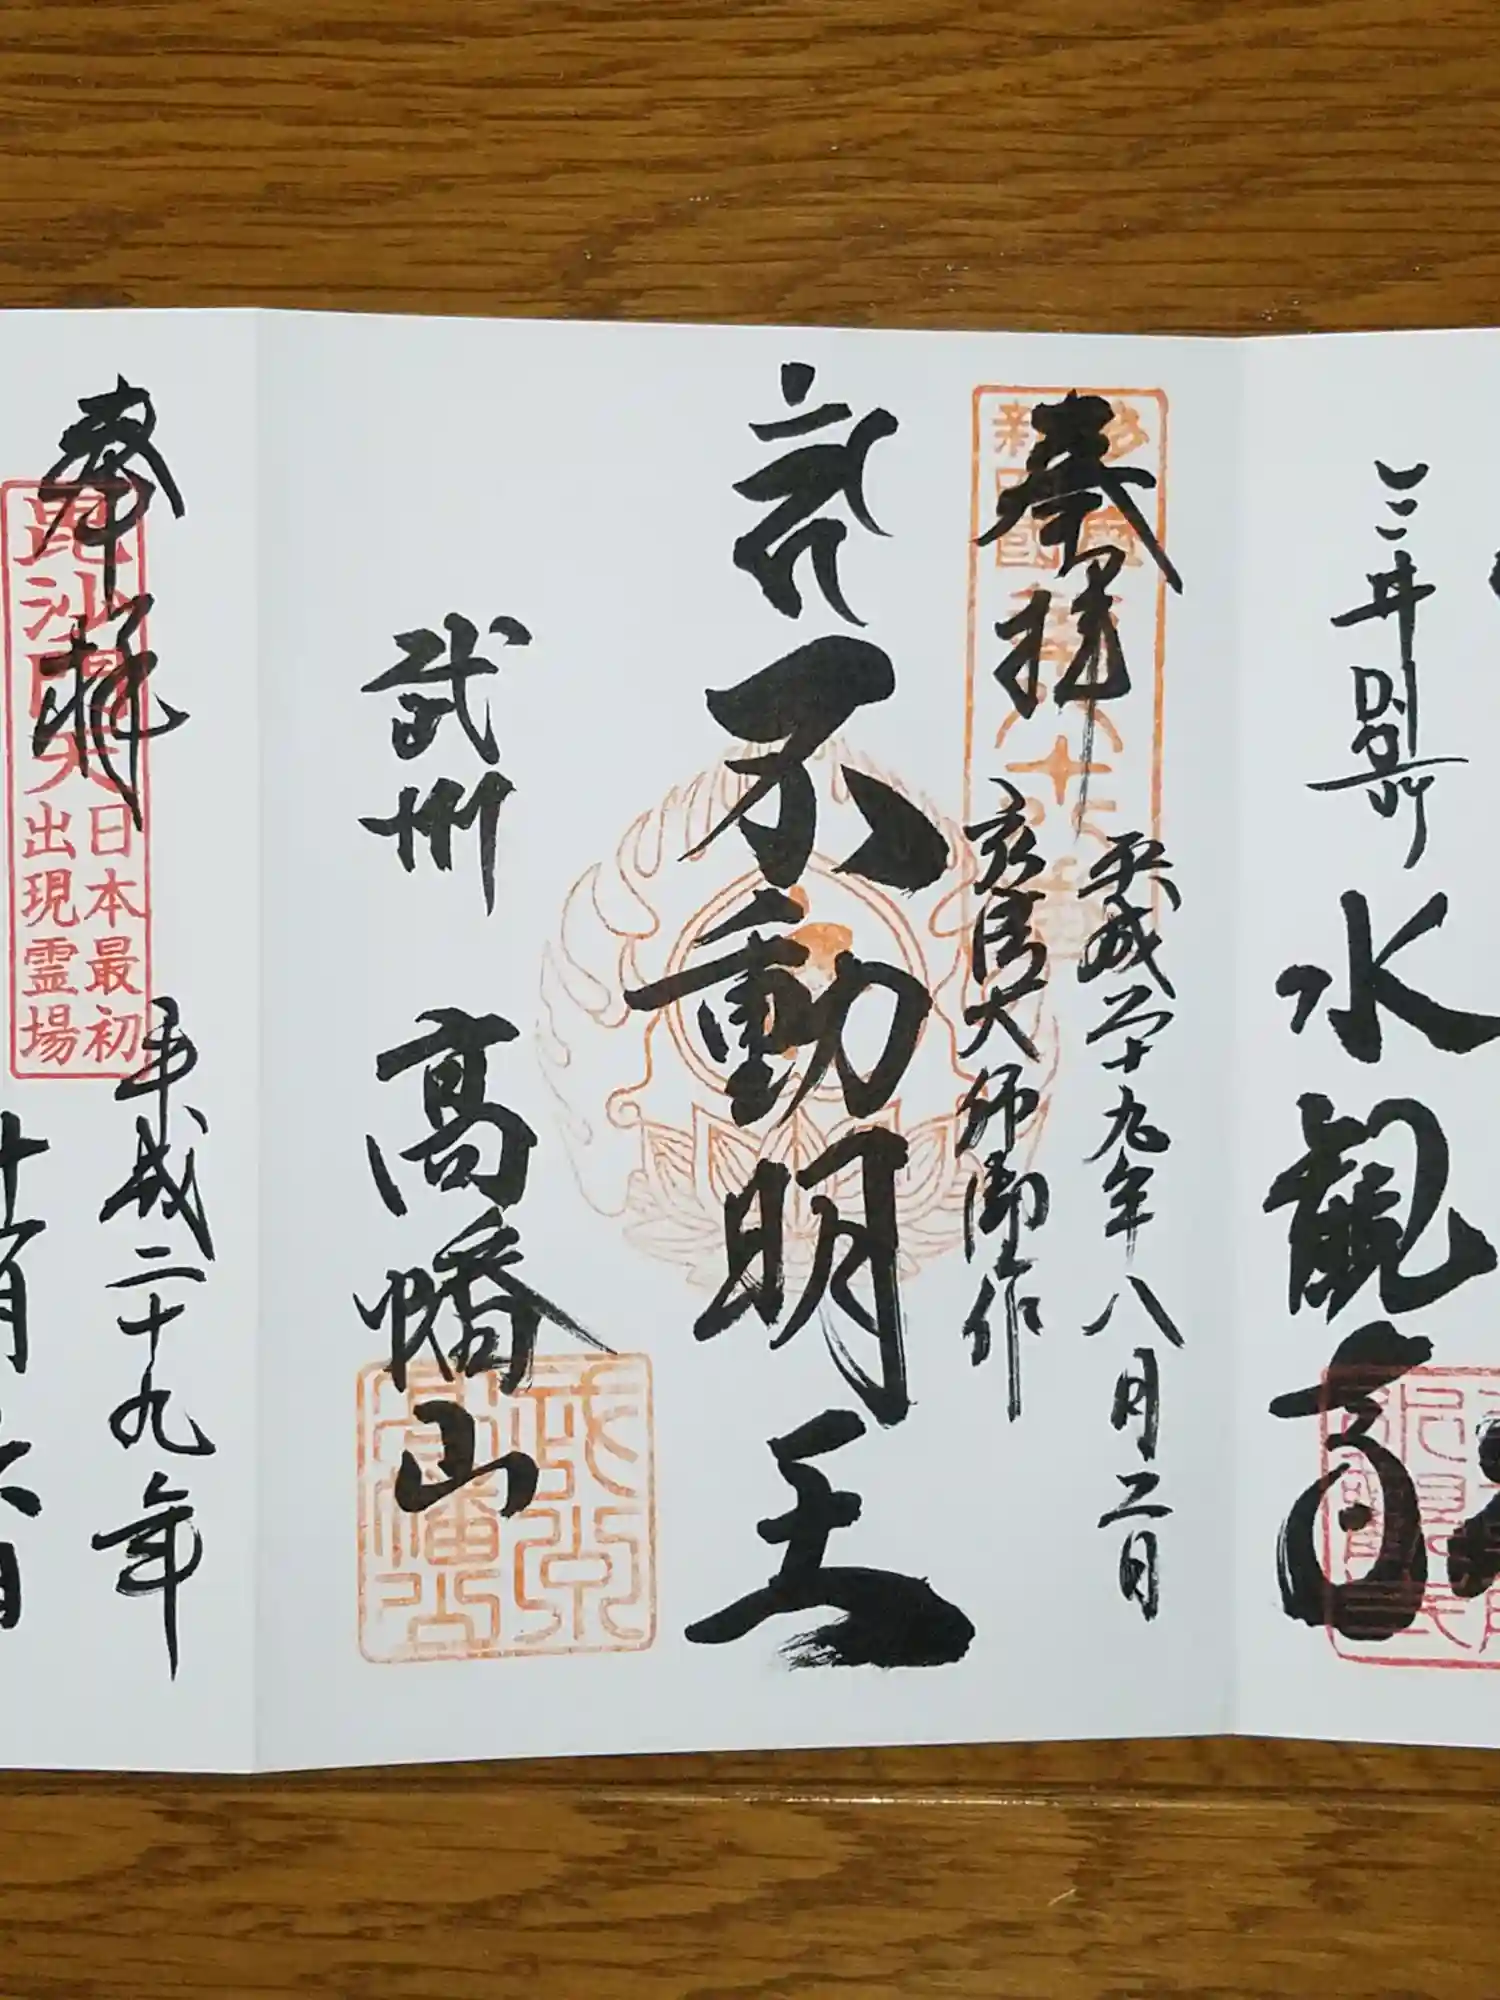 三井別所
水観音
奉拝
平成二十九年八月二日
弘法大師御作
不動明王
武州
高幡山
武州
高幡山
奉拝
毘沙門天
日本最初
出現霊場
平成二十九年
十一月
六日